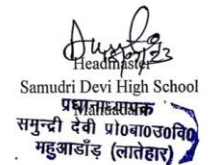 Headmaster
Samudri Devi High School
Mahuadanr
प्रधानाध्यापक
समुन्द्री देवी प्रो०बा०उ०वि०
महुआडाँड़ (लातेहार)